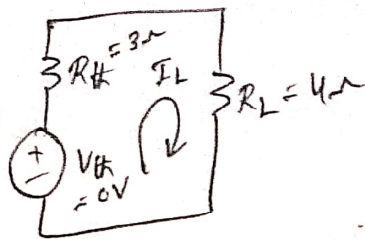 R_th = 3Ω
I_L
R_L = 4Ω
+
−
V_th
= 0V